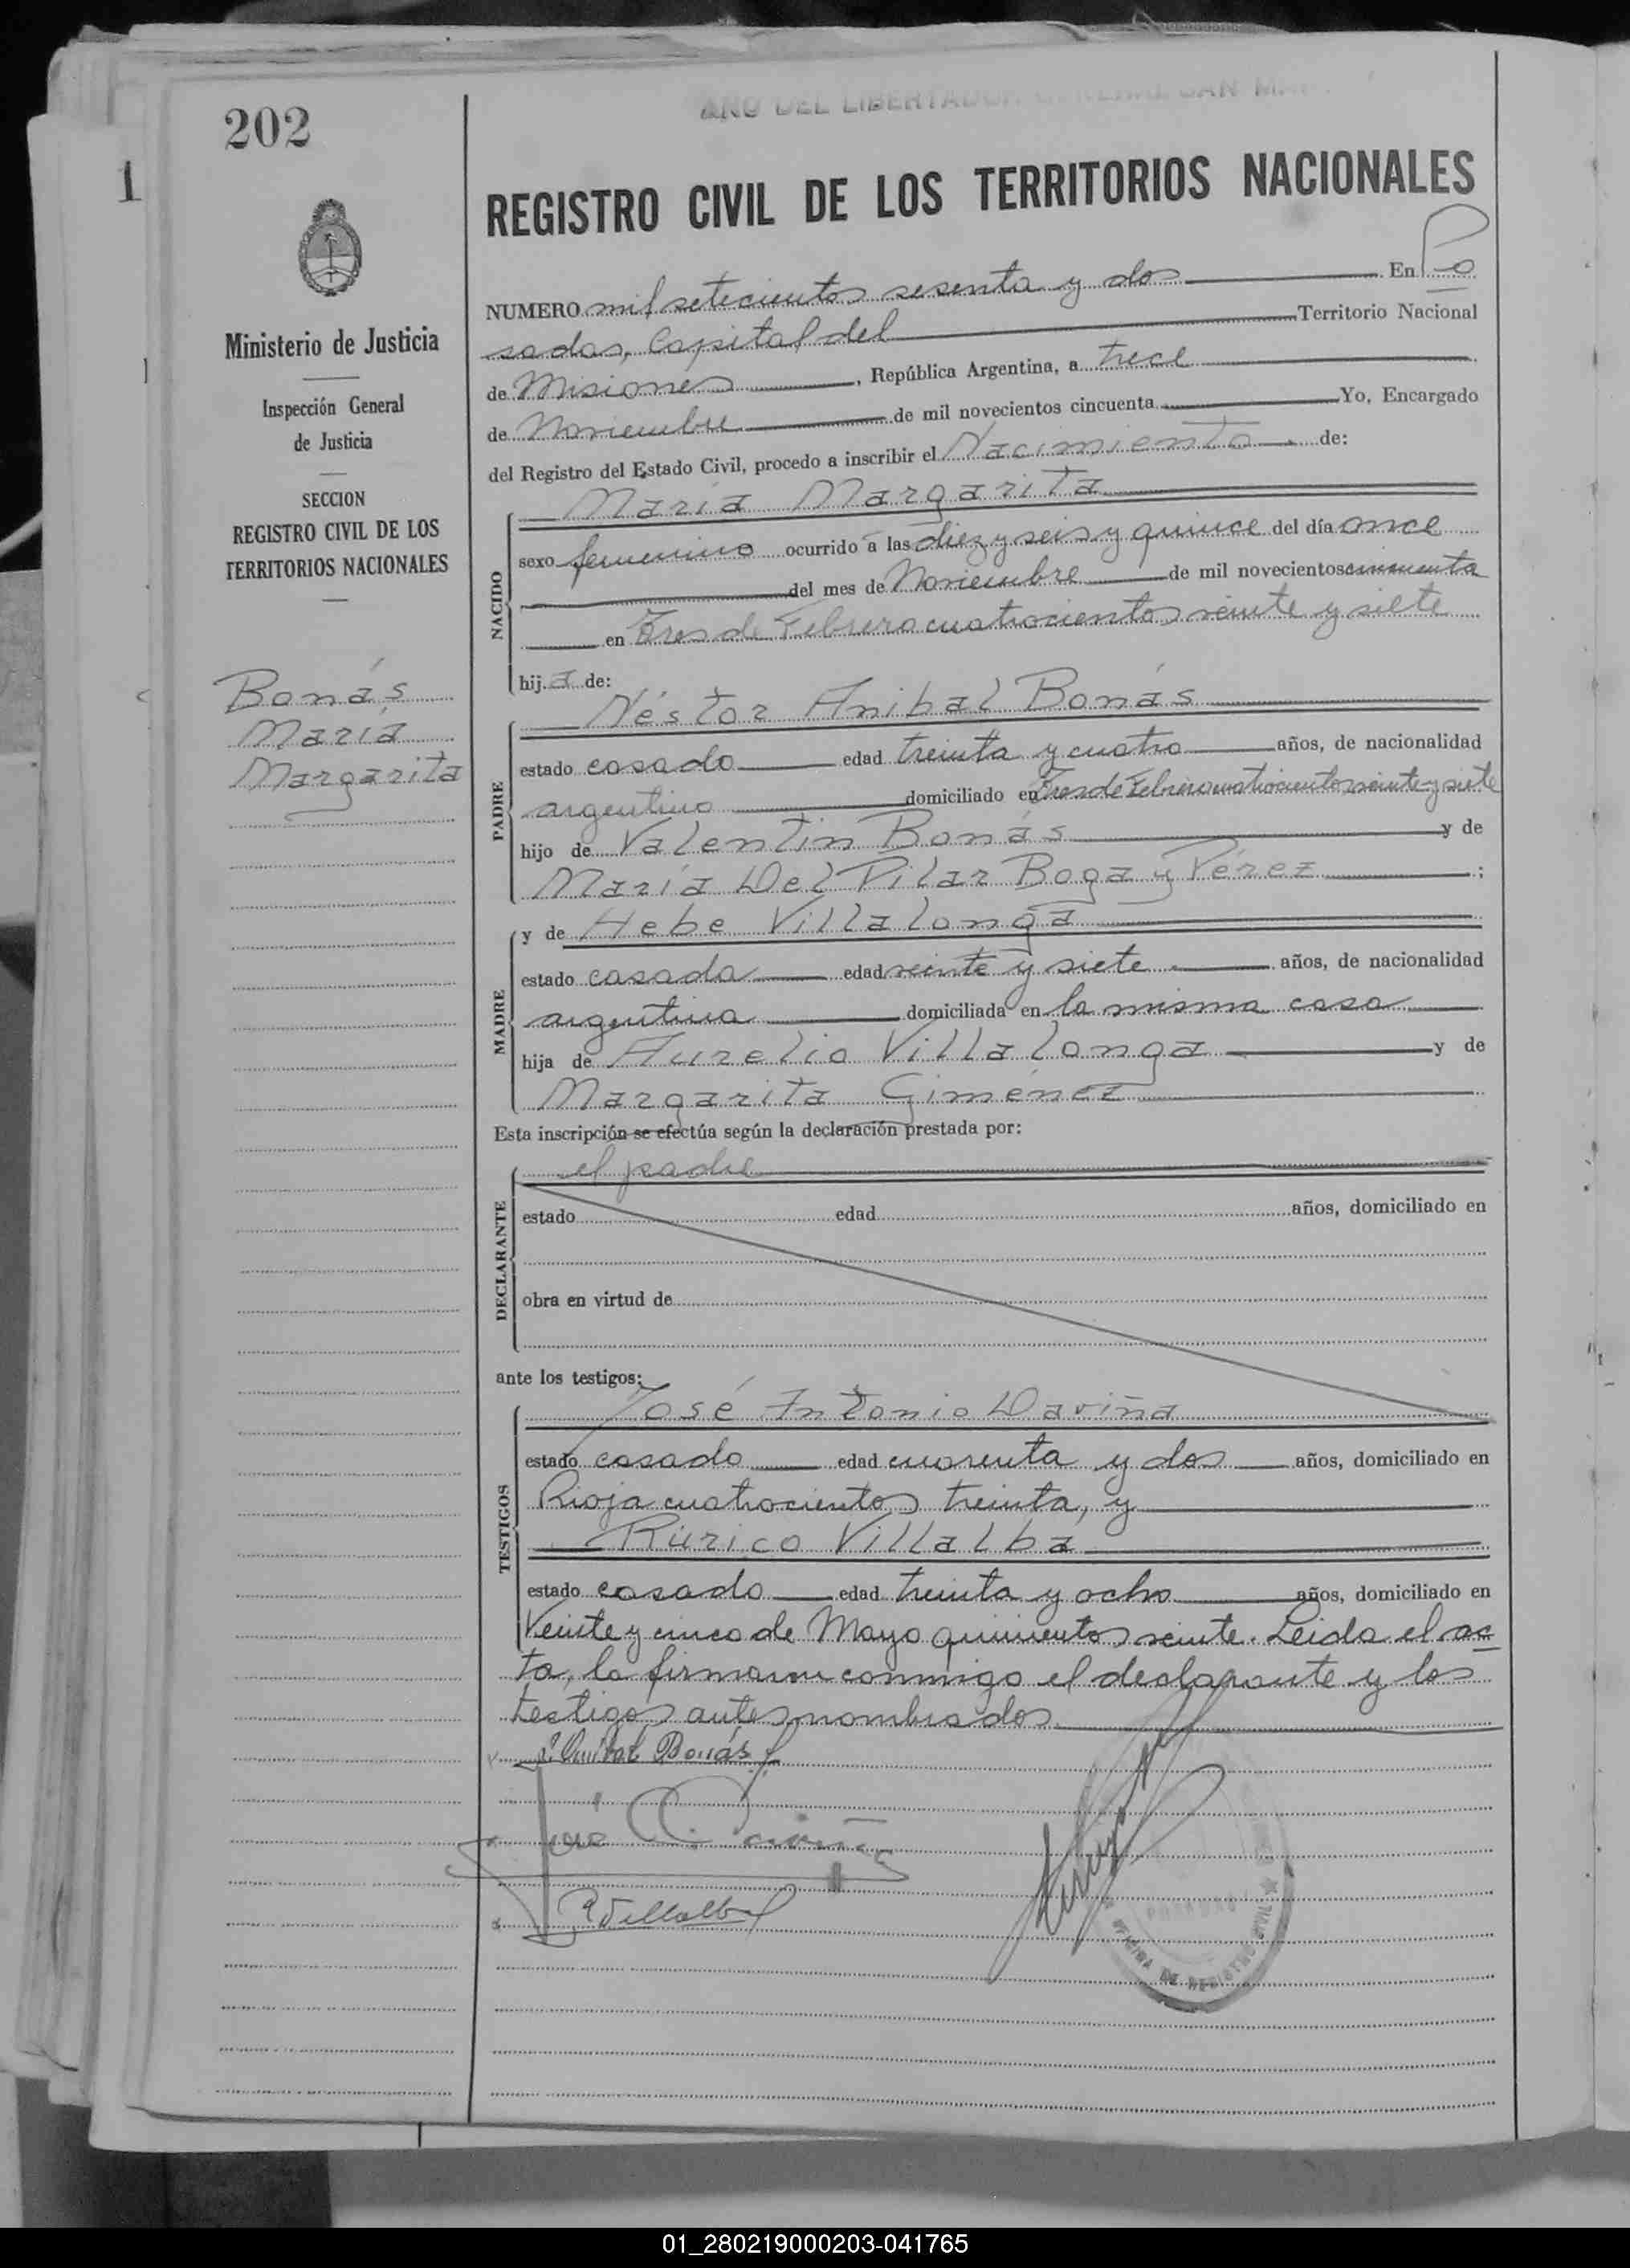 AÑO DEL LIBERTADOR GENERAL SAN
202
1
REGISTRO CIVIL DE LOS TERRITORIOS NACIONALES
Ministerio de Justicia
Inspección General
de Justicia
SECCION
REGISTRO CIVIL DE LOS
TERRITORIOS NACIONALES
Bonás
María
Margarita
NUMERO mil setecientos sesenta y dos En Po
sadas, Capital del Territorio Nacional
de Misiones, República Argentina, a trece
de Noviembre de mil novecientos cincuenta Yo, Encargado
del Registro del Estado Civil, procedo a inscribir el Nacimiento de:
NACIDO
María Margarita
sexo femenino ocurrido a las diez y seis y quince del día once
del mes de Noviembre de mil novecientos cincuenta
en Tres de Febrero cuatrocientos veinte y siete
hija de:
PADRE
Néstor Anibal Bonás
estado casado edad treinta y cuatro años, de nacionalidad
argentino domiciliado en Tres de Febrero cuatrocientos veinte y siete
hijo de Valentín Bonás y de
María Del Pilar Boga y Pérez;
MADRE
y de Hebe Villalonga
estado casada edad veinte y siete años, de nacionalidad
argentina domiciliada en la misma casa
hija de Aurelio Villalonga y de
Margarita Gimenez
Esta inscripción se efectúa según la declaración prestada por:
DECLARANTE
el padre
estado edad años, domiciliado en
obra en virtud de
ante los testigos:
TESTIGOS
José Antonio Daviña
estado casado edad cuarenta y dos años, domiciliado en
Rioja cuatrocientos treinta, y
Rúrico Villalba
estado casado edad treinta y ocho años, domiciliado en
Veinte y cinco de Mayo quinientos veinte. Leida el ac
ta, la firmaron conmigo el declarante y los
testigos antes nombrados.
Anibal Bonás
José Daviña
R Villalba
OFICINA DE REGISTRO CIVIL
POSADAS
01_280219000203-041765